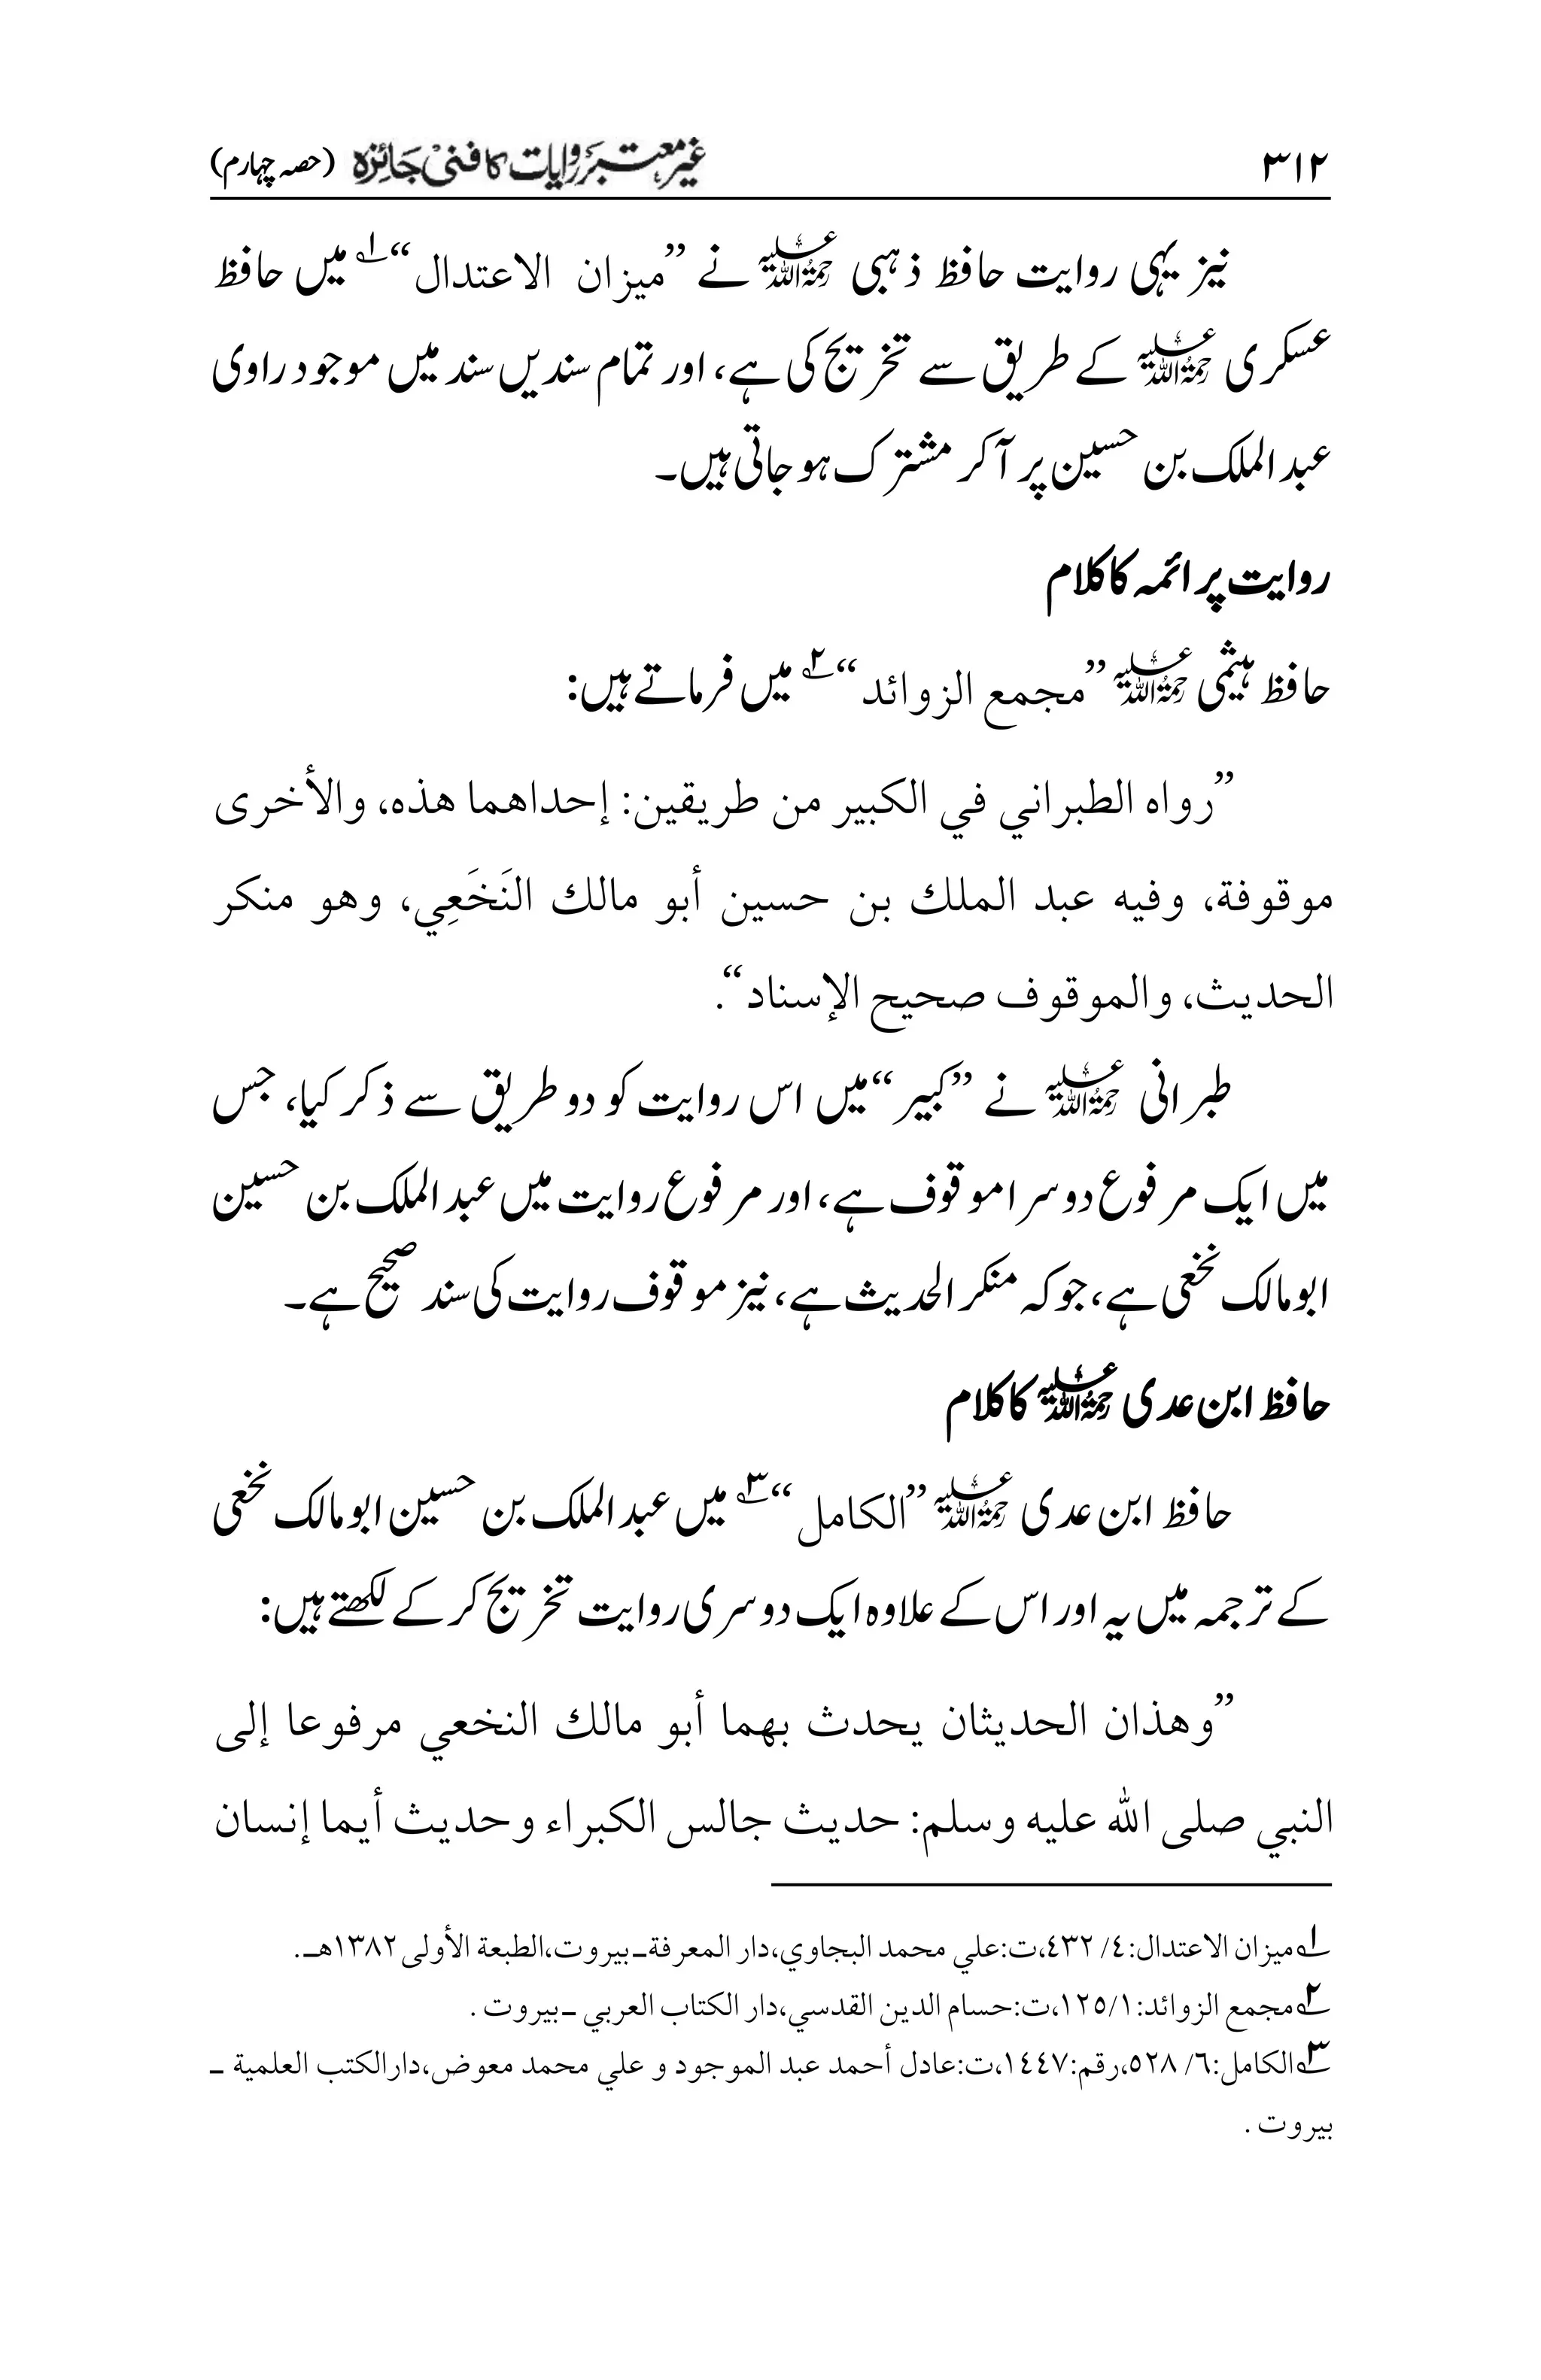 ۳۱۲ غیر معتبر روایات کا فنی جائزہ (حصہ چہارم)
نیز یہی روایت حافظ ذہبی رحمۃ اللہ علیہ نے ”میزان الاعتدال“ ۱؎ میں حافظ
عسکری رحمۃ اللہ علیہ کے طریق سے تخریج کی ہے، اور تمام سندیں سند میں موجود راوی
عبد الملک بن حسین پر آ کر مشترک ہو جاتی ہیں۔
روایت پر ائمہ کا کلام
حافظ ہیثمی رحمۃ اللہ علیہ ”مجمع الزوائد“ ۲؎ میں فرماتے ہیں:
”رواه الطبراني في الكبير من طريقين: إحداهما هذه، والأخرى
موقوفة، وفيه عبد الملك بن حسين أبو مالك النَخَعِي، وهو منكر
الحديث، والموقوف صحيح الإسناد“.
طبرانی رحمۃ اللہ علیہ نے ”کبیر“ میں اس روایت کو دو طریق سے ذکر کیا، جس
میں ایک مرفوع دوسرا موقوف ہے، اور مرفوع روایت میں عبد الملک بن حسین
ابو مالک نخعی ہے، جو کہ منکر الحدیث ہے، نیز موقوف روایت کی سند صحیح ہے۔
حافظ ابن عدی رحمۃ اللہ علیہ کا کلام
حافظ ابن عدی رحمۃ اللہ علیہ ”الکامل“ ۳؎ میں عبد الملک بن حسین ابو مالک نخعی
کے ترجمہ میں یہ اور اس کے علاوہ ایک دوسری روایت تخریج کر کے لکھتے ہیں:
”وهذان الحديثان يحدث بهما أبو مالك النخعي مرفوعا إلى
النبي صلى الله عليه وسلم: حديث جالس الكبراء وحديث أيما إنسان
۱؎ ميزان الاعتدال:٤/ ٤٣٢،ت:علي محمد البجاوي،دار المعرفة ـ بيروت،الطبعة الأولى ١٣٨٢هـ .
۲؎ مجمع الزوائد:١٢٥/١،ت:حسام الدين القدسي،دار الكتاب العربي ـ بيروت .
۳؎ الكامل:٦/ ٥٢٨،رقم:١٤٤٧،ت:عادل أحمد عبد الموجود و علي محمد معوض،دارالكتب العلمية ـ
بيروت .